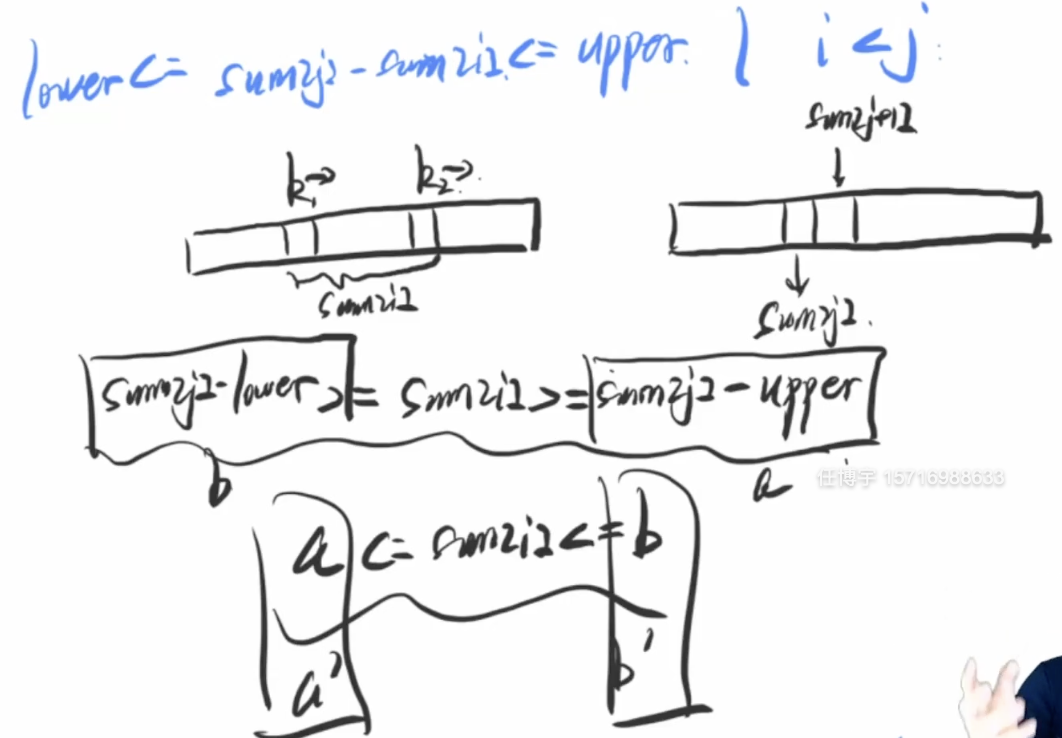 lower <= sum[j] - sum[i] <= upper. | i < j
sum[j+1]
k1→ k2→
sum[i] sum[j].
sum[j]-lower >= sum[i] >= sum[j]-upper
b a
任博宇 15716988633
a <= sum[i] <= b
a' b'